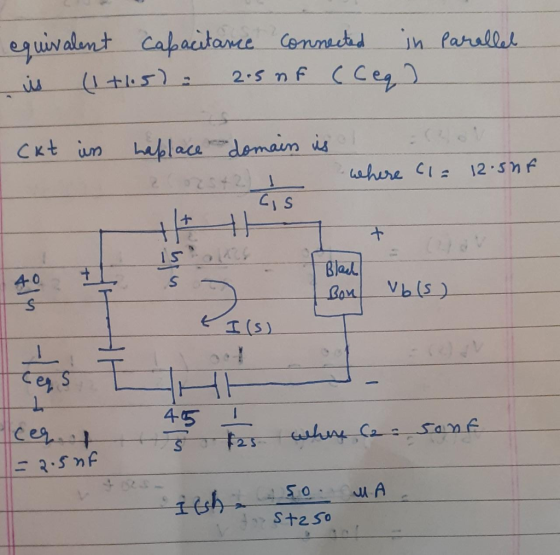 equivalent Capacitance Connected in Parallel
is (1+1.5) = 2.5 nF (Ceq)
Ckt in Laplace domain is
where C1 = 12.5nF
1/C1s
+
15/s
+
40/s
+
Black
Box
Vb(s)
I(s)
1/Ceqs
Ceq
= 2.5nF
-
45/s
1/C2s
where C2 = 50nF
I(s) = 50/s+250 uA